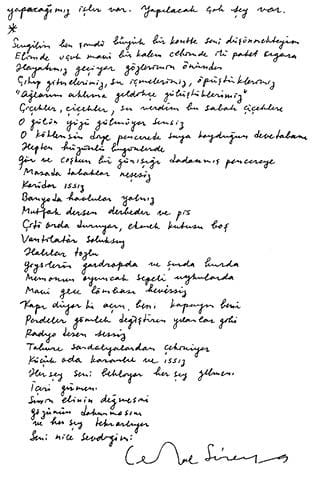 yapacağımız işler var. Yapılacak çok şey var.
*
Sevgilim ben şimdi büyük bir kentte seni düşünmekteyim
Elimde uçuk mavi bir kalem cebimde iki paket sigara
Hayatımız geçiyor gözlerimin önünden
Çıkıp gitmelerimiz, su içmelerimiz, öpüştüklerimiz
"Ağlarım aklıma geldikçe gülüştüklerimiz"
Çiçekler, çiçekler, su verdim bu sabah çiçeklere
O gülün yüzü gülmüyor sensiz
O köklensin diye pencerede suya koyduğun devetabanı
Hepten hüzünlü bugünlerde
Gür ve coşkun bir günışığı dadanmış pencereye
Masada tabaklar neşesiz
Koridor ıssız
Banyoda havlular yalnız
Mutfak dersen derbeder ve pis
Çiti orda duruyor, ekmek kutusu boş
Vantilatör soluksuz
Halılar tozlu
Giysilerin gardropda ve şurda burda
Memo'nun oyuncak sepeti uykularda
Mavi gece lambası hevessiz
Kapı diyor ki açın beni kapayın beni
Perdeler gömlek değiştiren yılanlar gibi
Radyo desen sessiz
Tabure sandalyalardan çekiniyor
Küçük oda karanlık ve ıssız
Her şey seni bekliyor her şey gelmeni
İçeri girmeni
Senin elinin değmesini
Gözünün dokunmasını
ve her şey tekrarlıyor
Seni nice sevdiğimi